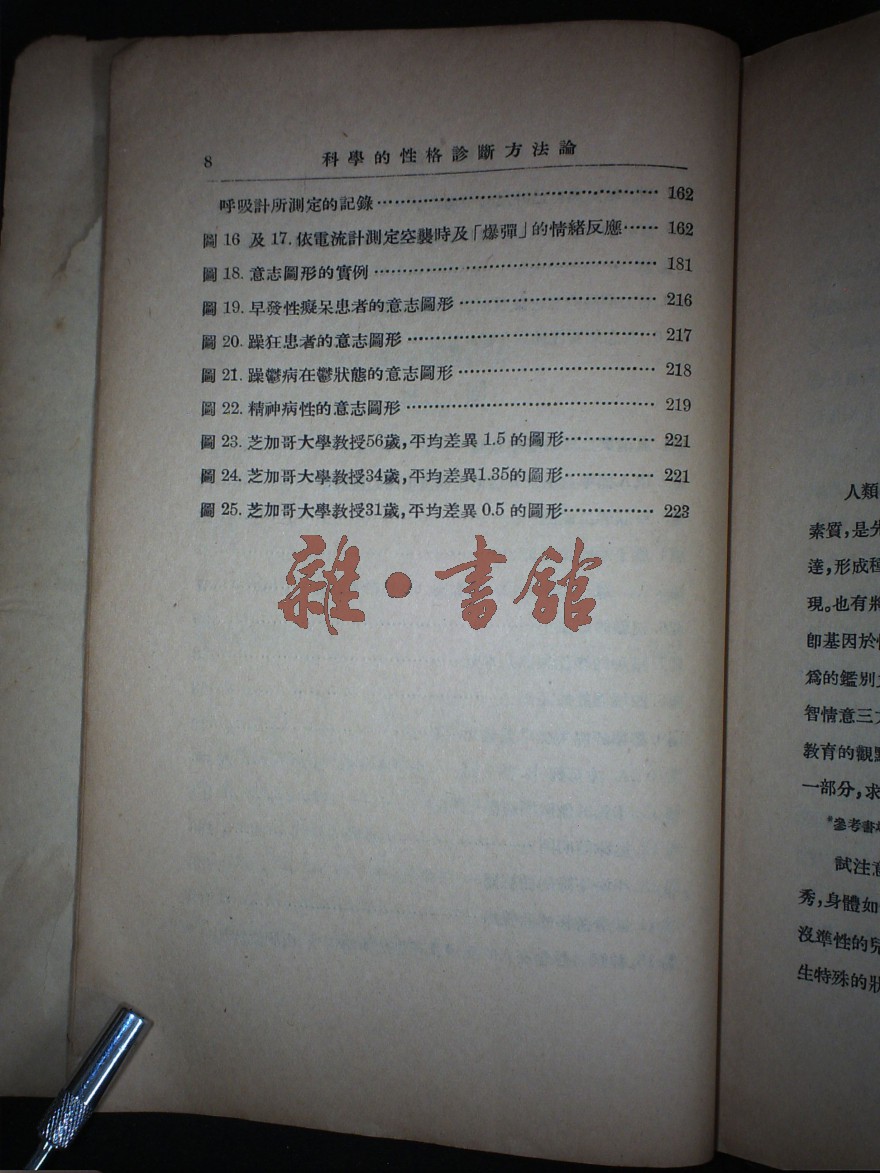 8 科學的性格診斷方法論
呼吸計所測定的記錄 162
圖 16 及 17. 依電流計測定空襲時及「爆彈」的情緒反應 162
圖 18. 意志圖形的實例 181
圖 19. 早發性癡呆患者的意志圖形 216
圖 20. 躁狂患者的意志圖形 217
圖 21. 躁鬱病在鬱狀態的意志圖形 218
圖 22. 精神病性的意志圖形 219
圖 23. 芝加哥大學教授56歲,平均差異 1.5 的圖形 221
圖 24. 芝加哥大學教授34歲,平均差異1.35的圖形 221
圖 25. 芝加哥大學教授31歲,平均差異 0.5 的圖形 223
雜•書館
人類
素質,是先
達,形成種
現。也有將
卽基因於
爲的鑑別
智情意三方
教育的觀點
一部分,求
*參考書
試注意
秀,身體如
沒準性的兒
生特殊的狀